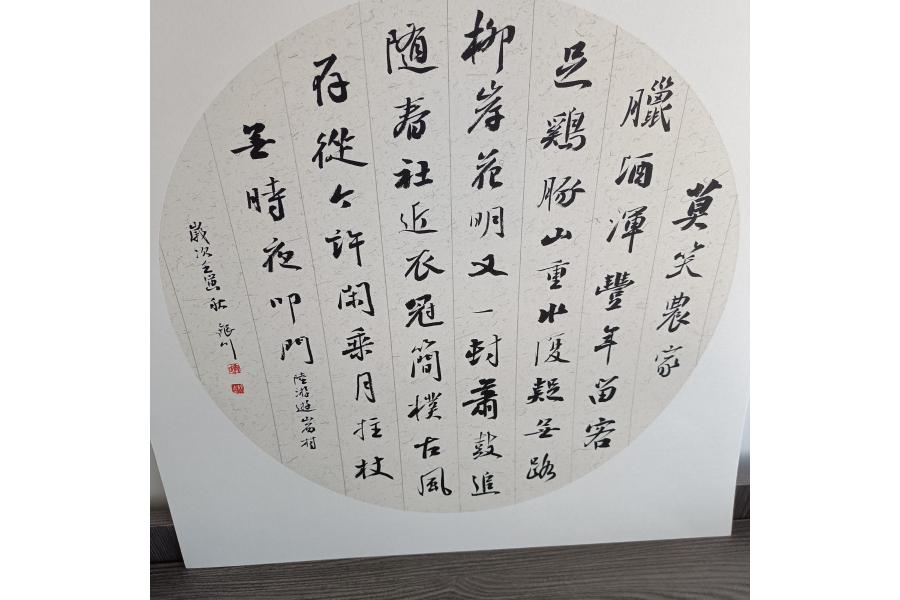 莫笑農家
臘酒渾豐年留客
足鷄豚山重水復疑無路
柳岸花明又一封蕭鼓追
隨春社近衣冠簡樸古風
存從今許閑乘月拄杖
無時夜叩門
陸游遊山西村
歲次壬寅秋 銀川